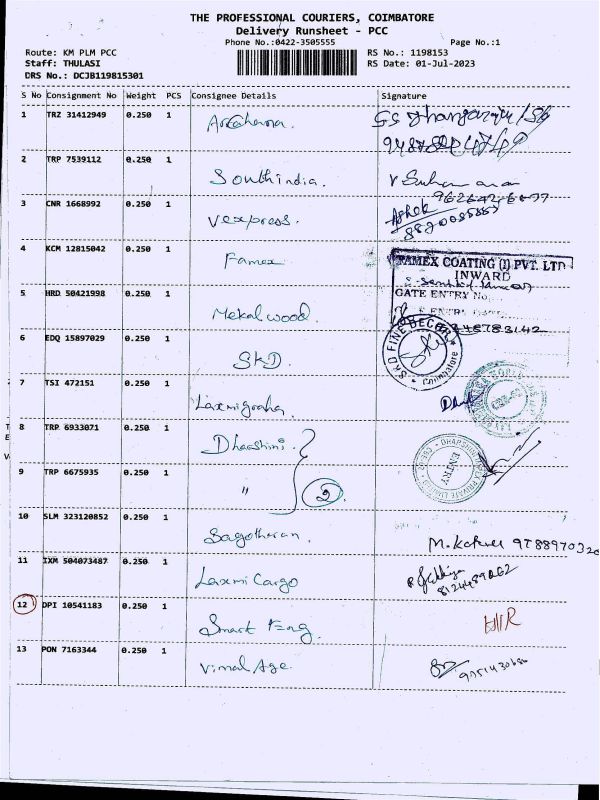 THE PROFESSIONAL COURIERS, COIMBATORE
Delivery Runsheet - PCC
Phone No.:0422-3505555
Page No.:1
Route: KM PLM PCC
RS No.: 1198153
Staff: THULASI
RS Date: 01-Jul-2023
DRS No.: DCJB119815301
S No Consignment No Weight PCS Consignee Details Signature
1 TRZ 31412949 0.250 1
2 TRP 7539112 0.250 1 Southindia.
3 CNR 1668992 0.250 1 Vexpress. Ashok
4 KCM 12815042 0.250 1 Famex
FAMEX COATING (I) PVT. LTD
INWARD
GATE ENTRY No.
5 HRD 50421998 0.250 1 Mekal wood
6 EDQ 15897029 0.250 1 SKD.
SKD FINE DECOR
Coimbatore
7 TSI 472151 0.250 1 Laxmigraha.
8 TRP 6933071 0.250 1 Dhaashini.
ENTRY
9 TRP 6675935 0.250 1 " 2
10 SLM 323120852 0.250 1 Sagotharan.
11 IXM 504073487 0.250 1 Laxmi Cargo
12 DPI 10541183 0.250 1 Smart Eng.
13 PON 7163344 0.250 1 Vimal Age